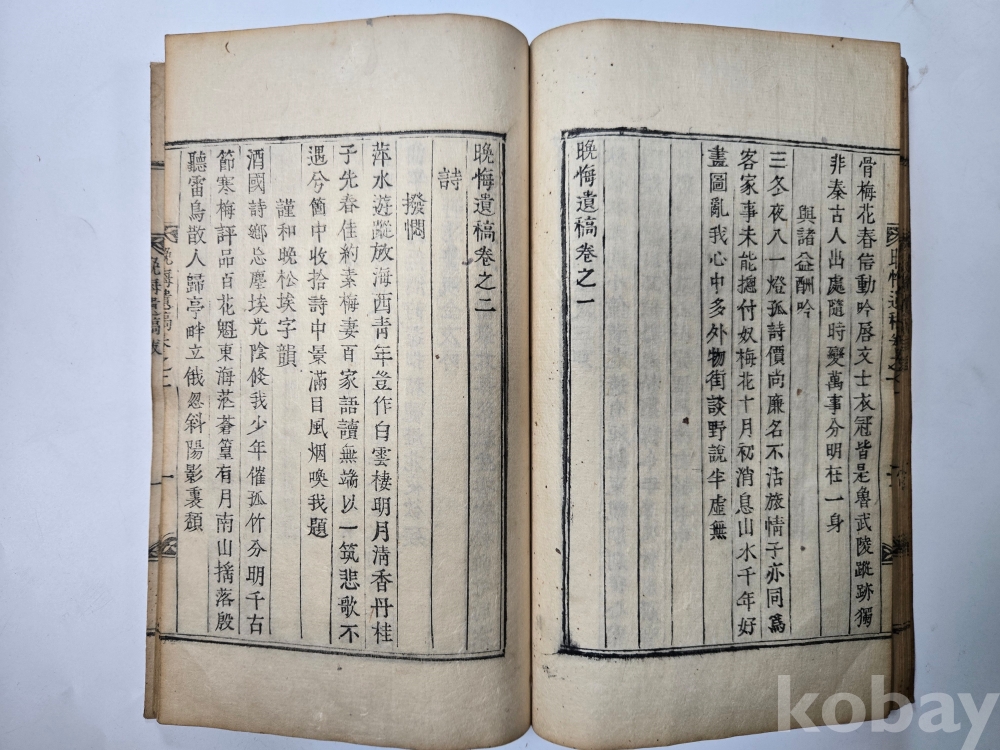 骨梅花春信動吟唇文士衣冠皆是魯武陵蹤跡獨
非秦古人出處隨時變萬事分明在一身
與諸益酬吟
三冬夜入一燈孤詩價尚廉名不沽旅情子亦同爲
客家事未能摠付奴梅花十月初消息山水千年好
畫圖亂我心中多外物街談野說半虛無
晩悔遺稿卷之一
晩悔遺稿卷之二
詩
撥憫
萍水遊蹤放海西靑年豈作白雲棲明月淸香丹桂
子先春佳約素梅妻百家語讀無端以一筑悲歌不
遇兮箇中收拾詩中景滿目風烟喚我題
謹和晩松埃字韻
酒國詩鄕忘塵埃光陰倏我少年催孤竹分明千古
節寒梅評品百花魁東海茫蒼篁有月南山搖落殷
聽雷鳥散人歸亭畔立俄忽斜陽影裏頹
晩悔遺稿卷之二
一
kobay